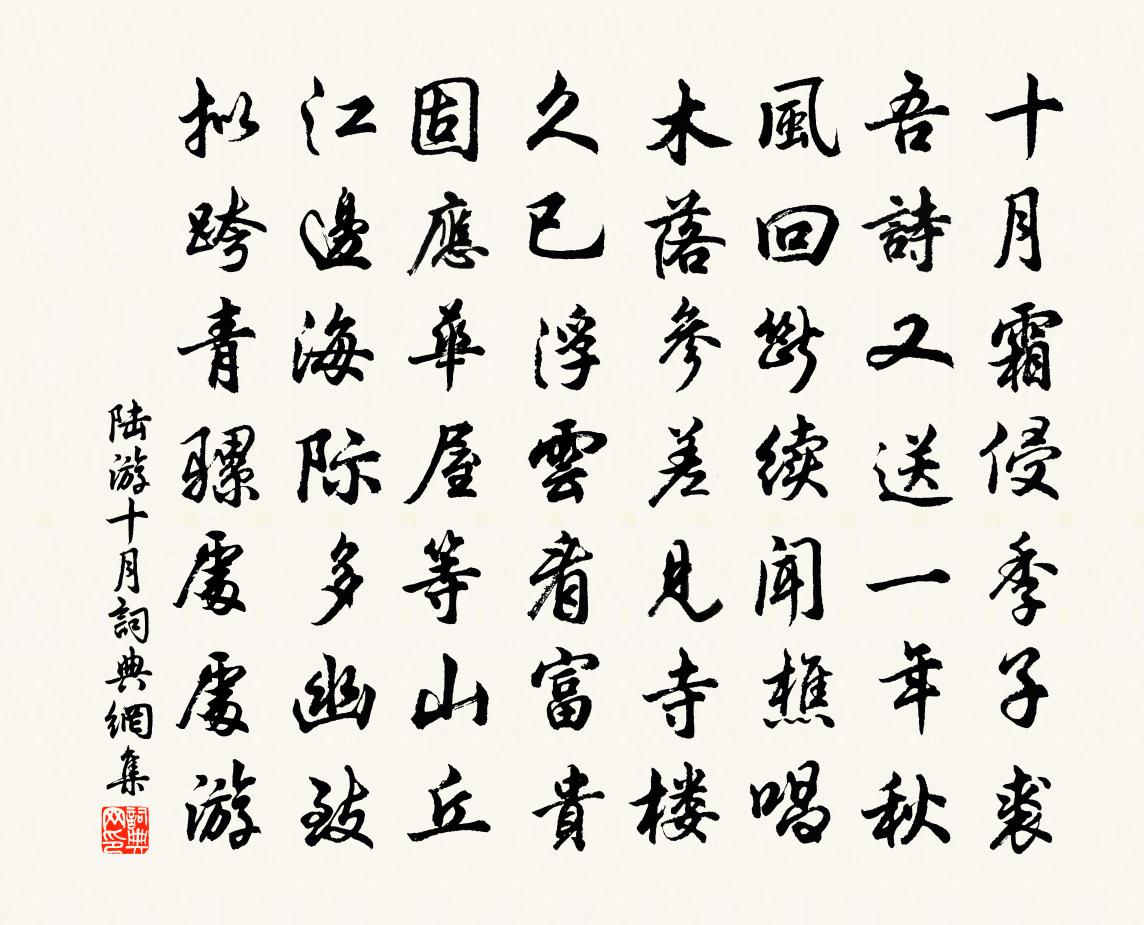 十月霜侵季子裘
吾詩又送一年秋
風回斷续闻樵唱
木落參差見寺楼
久已浮雲看富貴
固應華屋等山丘
江邊海际多幽致
拟跨青骡處處游
陆游十月詞典網集
詞典网印